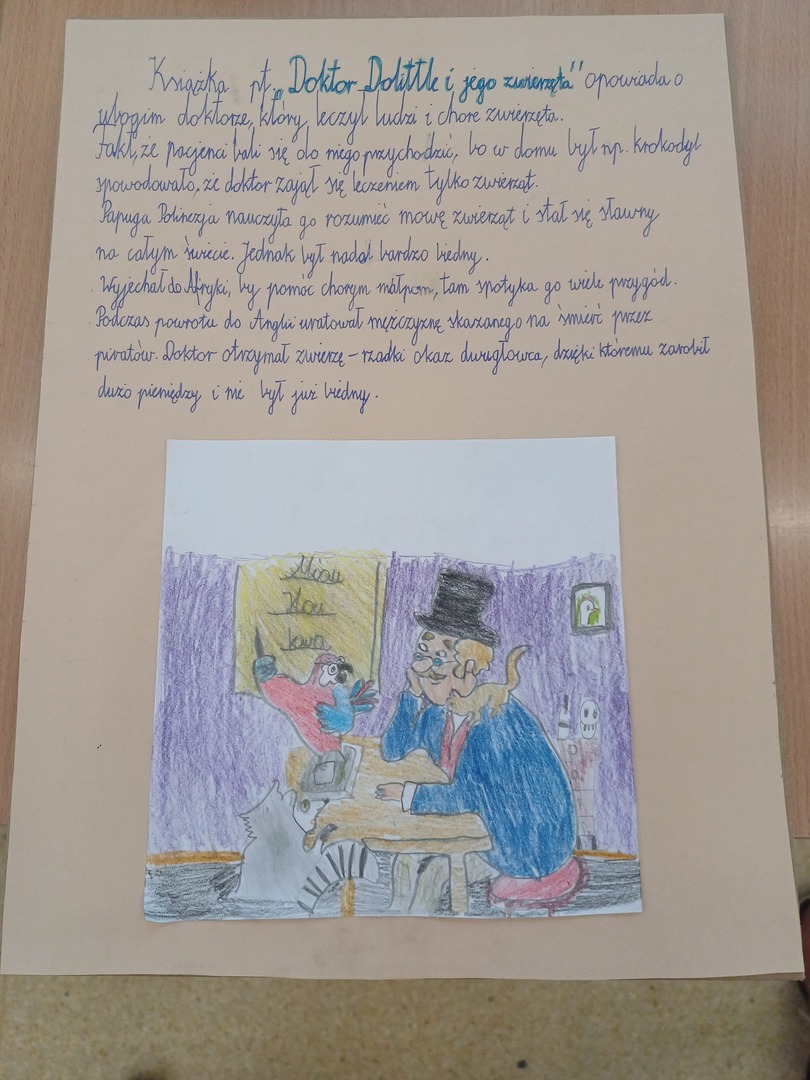 Książka pt. „Doktor Dolittle i jego zwierzęta" opowiada o
ubogim doktorze, który leczył ludzi i chore zwierzęta.
Fakt, że pacjenci bali się do niego przychodzić, bo w domu był np. krokodyl
spowodowało, że doktor zajął się leczeniem tylko zwierząt.
Papuga Polinezja nauczyła go rozumieć mowę zwierząt i stał się sławny
na całym świecie. Jednak był nadal bardzo biedny.
Wyjechał do Afryki, by pomóc chorym małpom, tam spotyka go wiele przygód.
Podczas powrotu do Anglii uratował mężczyznę skazanego na śmierć przez
piratów. Doktor otrzymał zwierzę – rzadki okaz dwugłowca, dzięki któremu zarobił
dużo pieniędzy i nie był już biedny.
Miau
Hau
kwa